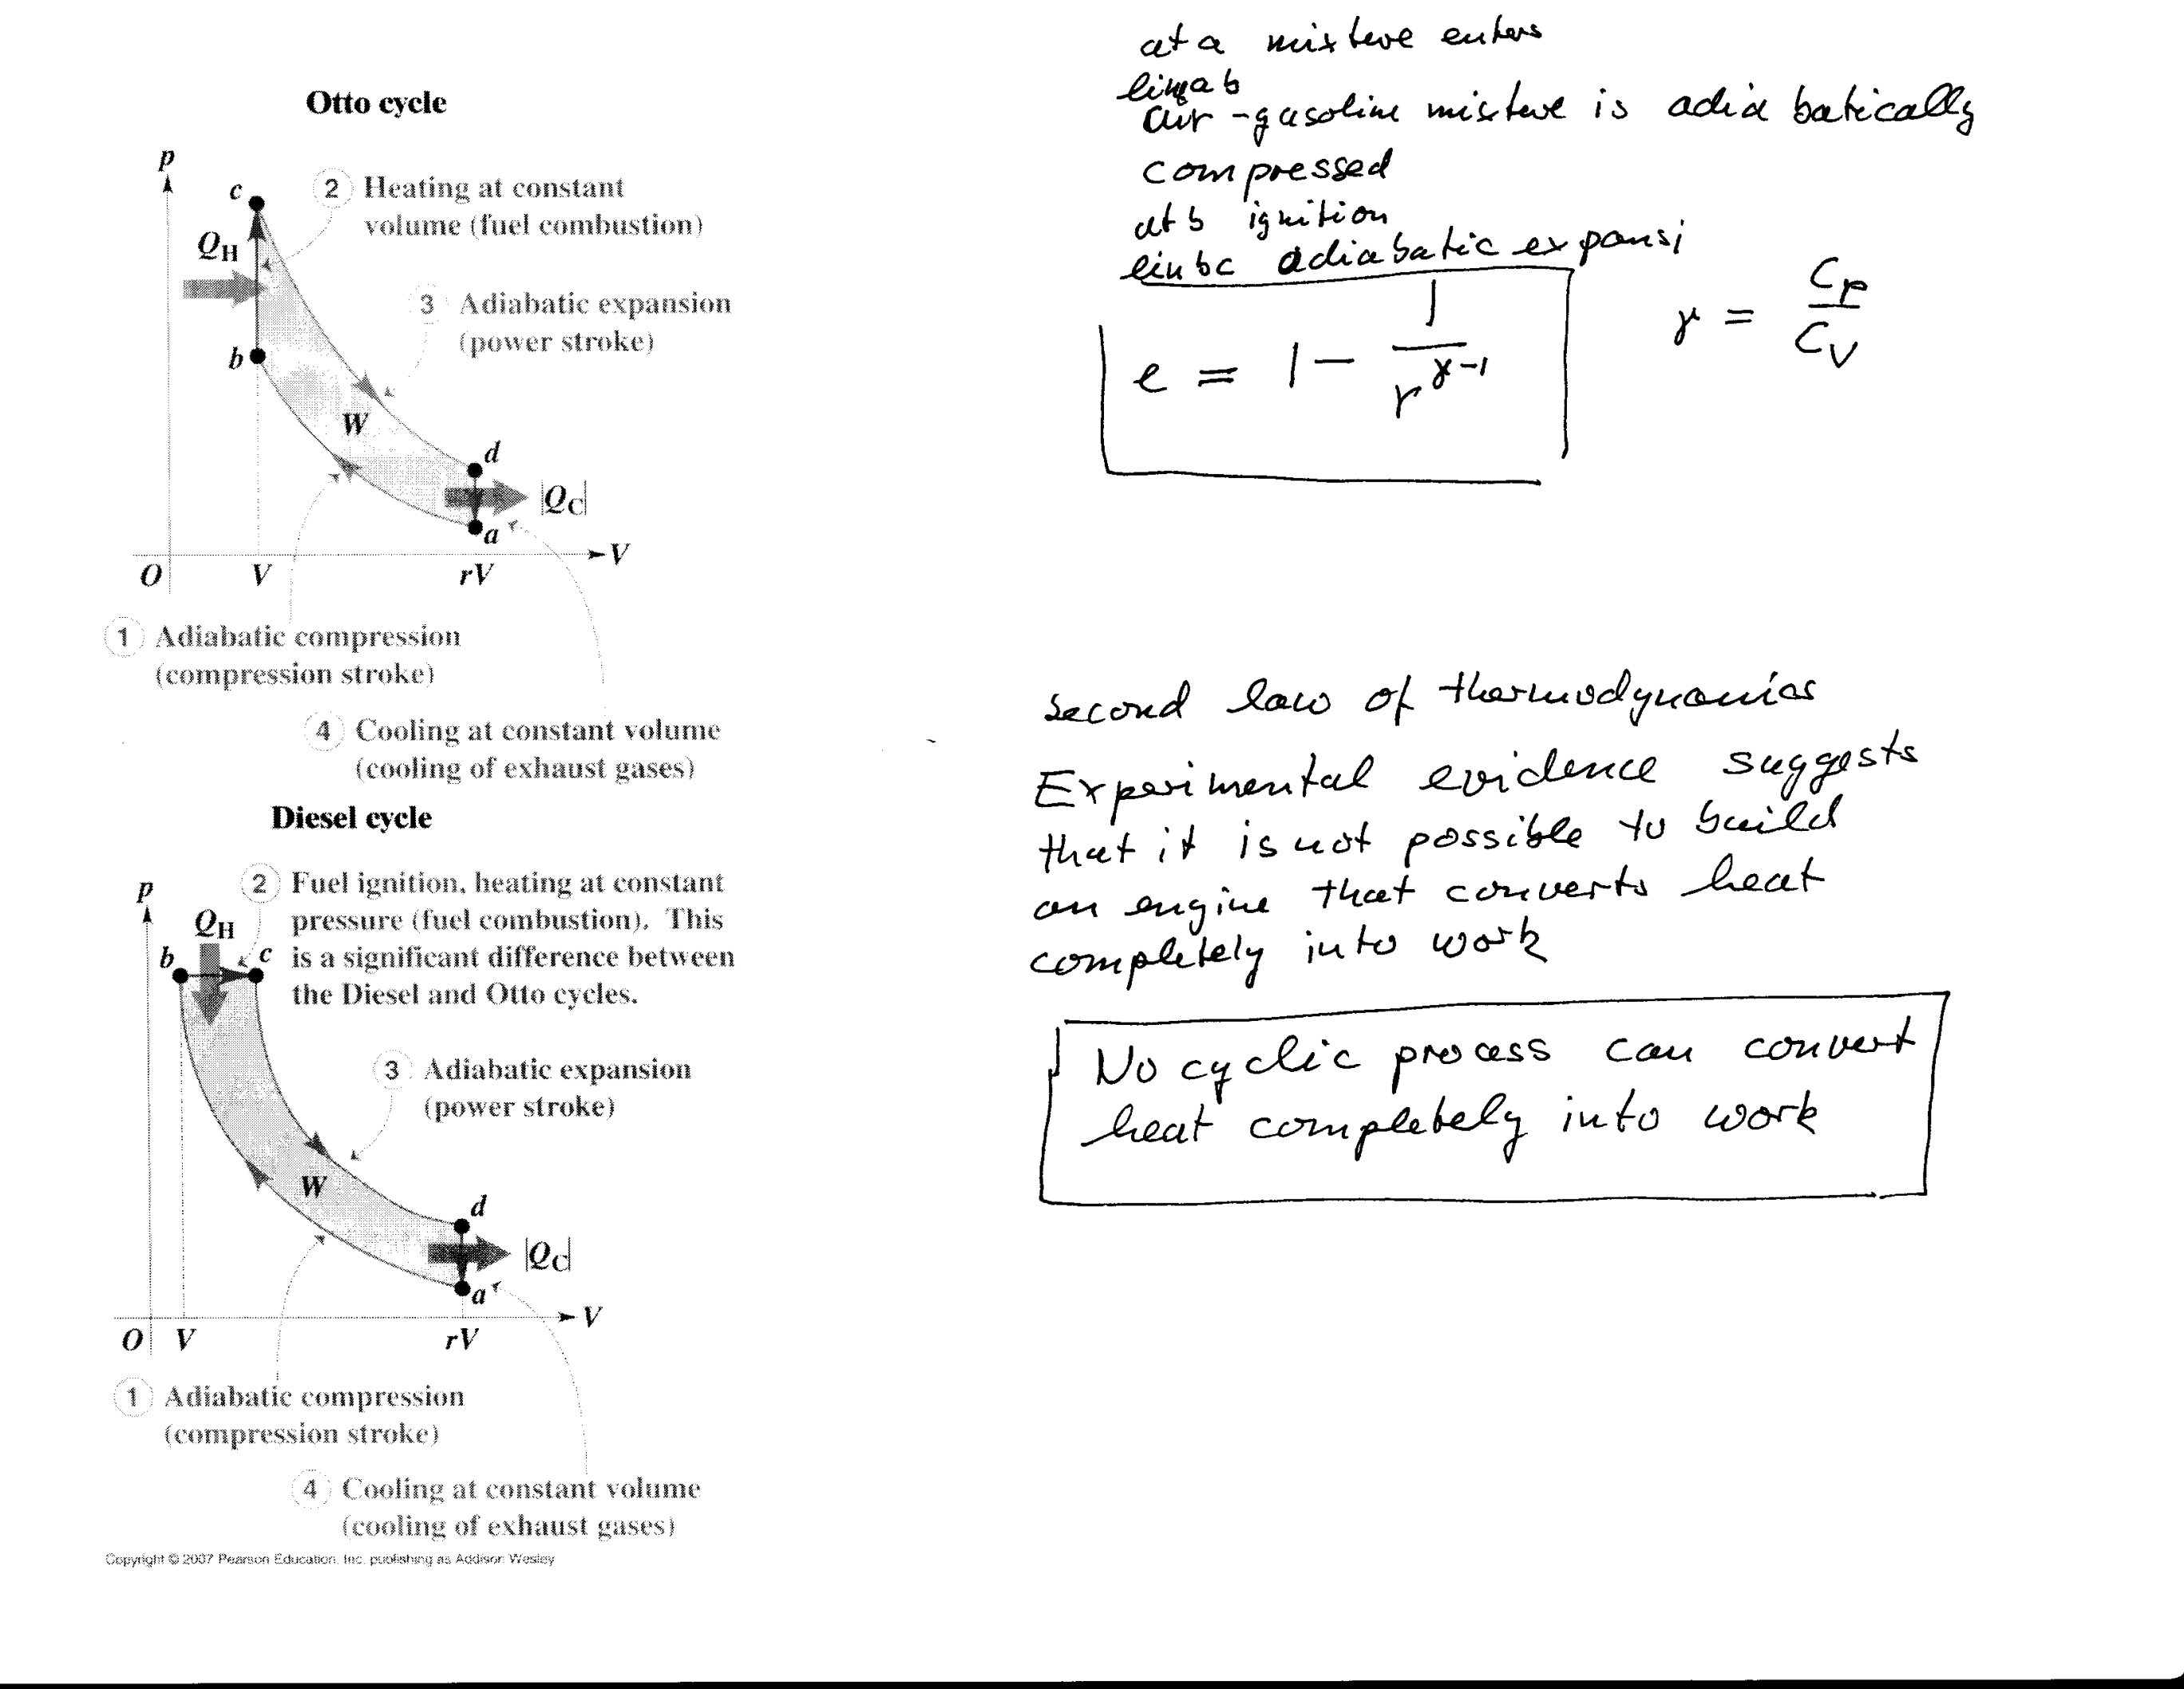 Otto cycle
p
c
2 Heating at constant
volume (fuel combustion)
QH
3 Adiabatic expansion
(power stroke)
b
W
d
|QC|
a
V
O V rV
1 Adiabatic compression
(compression stroke)
4 Cooling at constant volume
(cooling of exhaust gases)
Diesel cycle
p
2 Fuel ignition, heating at constant
pressure (fuel combustion). This
is a significant difference between
the Diesel and Otto cycles.
QH
b c
3 Adiabatic expansion
(power stroke)
W
d
|QC|
a
V
O V rV
1 Adiabatic compression
(compression stroke)
4 Cooling at constant volume
(cooling of exhaust gases)
Copyright © 2007 Pearson Education, Inc. publishing as Addison Wesley
at a mixture enters
line ab
air-gasoline mixture is adiabatically
compressed
at b ignition
lin bc adiabatic expansi
e = 1 - 1/r^γ-1
γ = Cp/CV
second law of thermodynamics
Experimental evidence suggests
that it is not possible to build
an engine that converts heat
completely into work
No cyclic process can convert
heat completely into work